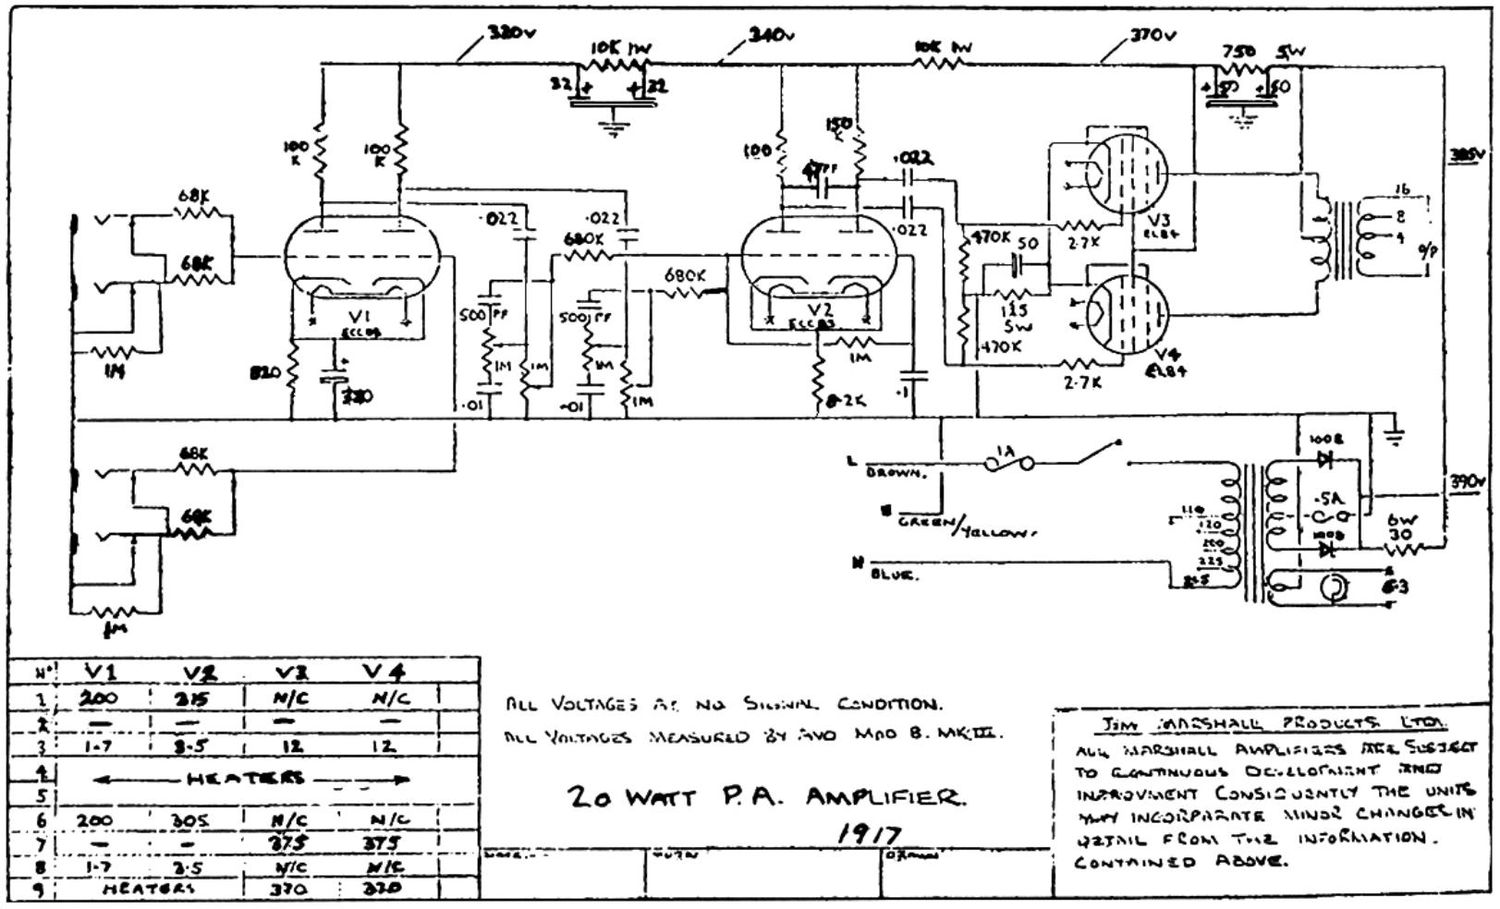 320v
10K 1W
340v
10K 1W
370v
750 5W
32 + + 32
+ 50 + 50
100 K
100 K
100
150 K
47PF
.022
385v
68K
.022
.022
680K
16
8
4
O/P
V3
EL84
470K
50
2.7K
.022
68K
680K
V1
ECC83
500PF
500PF
V2
ECC83
125
5W
470K
V4
EL84
1M
820
1M
1M
1M
1M
1M
2.7K
.01
.01
8.2K
.1
68K
L
BROWN.
1A
100B
390v
68K
GREEN/YELLOW.
110
120
200
225
245
.5A
100B
6W
30
N
BLUE.
6.3
1M
No V1 V2 V3 V4
1 200 215 N/C N/C
2 — — — —
3 1.7 3.5 12 12
4 HEATERS
5
6 200 305 N/C N/C
7 — — 375 375
8 1.7 3.5 N/C N/C
9 HEATERS 370 370
ALL VOLTAGES AT NO SIGNAL CONDITION.
ALL VOLTAGES MEASURED BY AVO MOD 8. MKIII.
20 WATT P.A. AMPLIFIER.
1917
DRAWN
JIM MARSHALL PRODUCTS LTD.
ALL MARSHALL AMPLIFIERS ARE SUBJECT
TO CONTINUOUS DEVELOPMENT AND
IMPROVMENT CONSEQUENTLY THE UNITS
MAY INCORPARATE MINOR CHANGES IN
DETAIL FROM THE INFORMATION.
CONTAINED ABOVE.